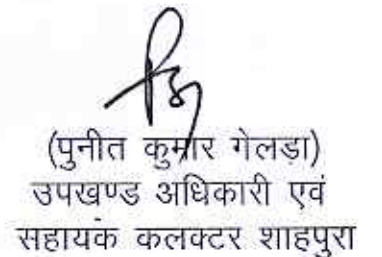 (पुनीत कुमार गेलड़ा)
उपखण्ड अधिकारी एवं
सहायक कलक्टर शाहपुरा